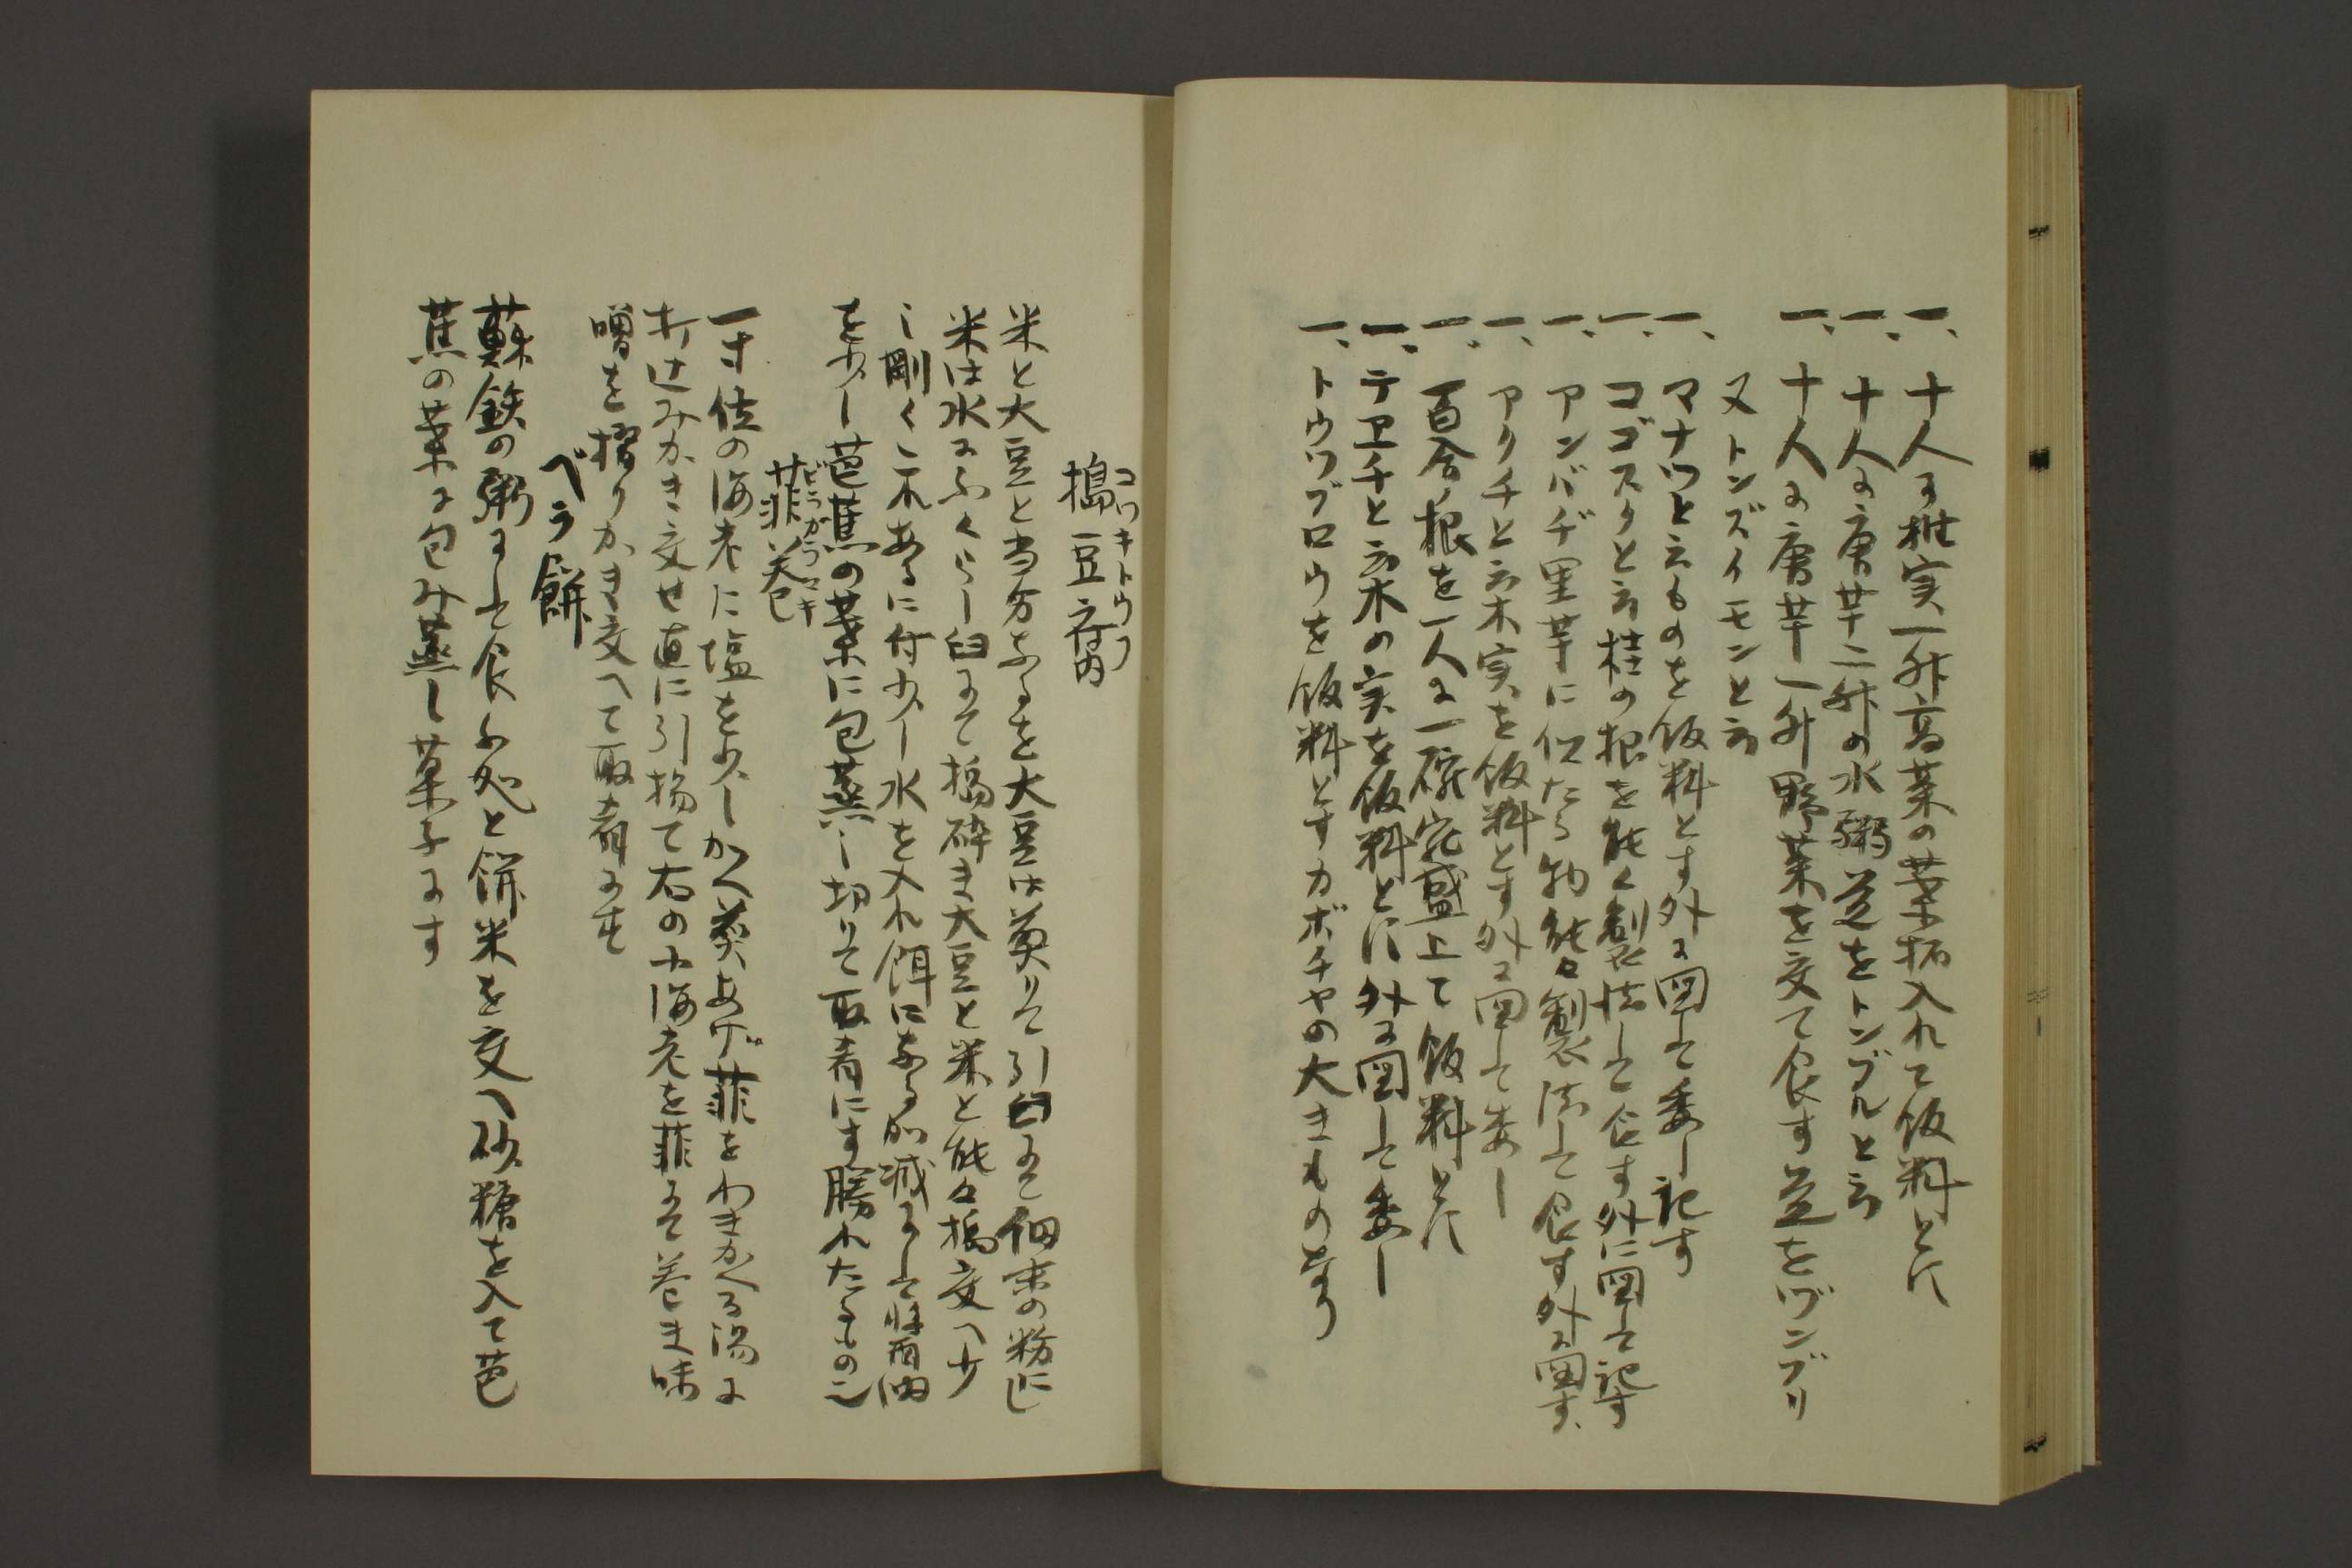 一、十人に椎実一升高菜の葉抔入れて飯料とに
一、十人に唐芋二升の水粥是をトンブルと云
一、十人に唐芋一升野菜を交て食す是をヅンブリ
又トンズイモンと云
一、マナツと云ものを飯料とす外に図して委し記す
一、コゴスクと云桂の根を能く製法して食す外に図して記す
一、アンバヂ里芋に似たる物能々製法して食す外に図す、
一、アクチと云木実を飯料とす外に図して委し
一、百合ノ根を一人に一碗宛盛上て飯料とに
一、テヱチと云木の実を飯料とに外に図して委し
一、トウツブロウを飯料とすカボチヤの大きものなり
コツキトウフ
搗豆腐
米と大豆と当分なるを大豆は煎りて引臼にて細末の粉にし
米は水にふくらし臼にて搗砕き大豆と米と能々搗交へ少
し剛くこれあるに付少し水を入れ餌になる加減にして醤油
を少し芭蕉の葉に包蒸し切りて取肴にす勝れたるもの也
ビラガラマキ
菲ノ巻
一寸位の海老に塩を少しかへ煎あげ菲をわきかへる湯に
打込みかき交せ直に引揚て右の小海老を菲にて巻き味
噌を摺りかき交へて取肴にす
ベラ餅
蘇鉄の粥にして食ふ処と餅米を交へ砂糖を入て芭
蕉の葉に包み蒸し菓子にす